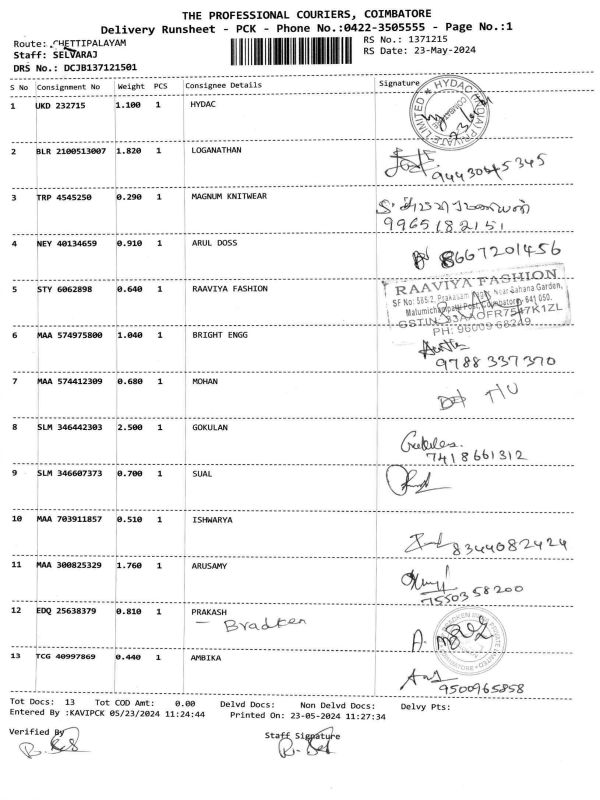 THE PROFESSIONAL COURIERS, COIMBATORE
Delivery Runsheet - PCK - Phone No.:0422-3505555 - Page No.:1
Route: CHETTIPALAYAM RS No.: 1371215
Staff: SELVARAJ RS Date: 23-May-2024
DRS No.: DCJB137121501
S No Consignment No Weight PCS Consignee Details Signature
1 UKD 232715 1.100 1 HYDAC
HYDAC INDIA PRIVATE LIMITED
COIMBATORE
2 BLR 2100513007 1.820 1 LOGANATHAN
9443045345
3 TRP 4545250 0.290 1 MAGNUM KNITWEAR
9965182151
4 NEY 40134659 0.910 1 ARUL DOSS
8667201456
5 STY 6062898 0.640 1 RAAVIYA FASHION
RAAVIYA FASHION
SF No: 585/2, Prakasam Nagar, Near Sahana Garden,
Malumichampatti Post, Coimbatore 641 050.
GSTIN: 33AAOFR7547K1ZL
PH: 96009 68249
6 MAA 574975800 1.040 1 BRIGHT ENGG
9788337370
7 MAA 574412309 0.680 1 MOHAN
T/U
8 SLM 346442303 2.500 1 GOKULAN
7418661312
9 SLM 346607373 0.700 1 SUAL
10 MAA 703911857 0.510 1 ISHWARYA
8344082424
11 MAA 300825329 1.760 1 ARUSAMY
7550358200
12 EDQ 25638379 0.810 1 PRAKASH
- Bradken
13 TCG 40997869 0.440 1 AMBIKA
9500965858
Tot Docs: 13 Tot COD Amt: 0.00 Delvd Docs: Non Delvd Docs: Delvy Pts:
Entered By :KAVIPCK 05/23/2024 11:24:44 Printed On: 23-05-2024 11:27:34
Verified By Staff Signature